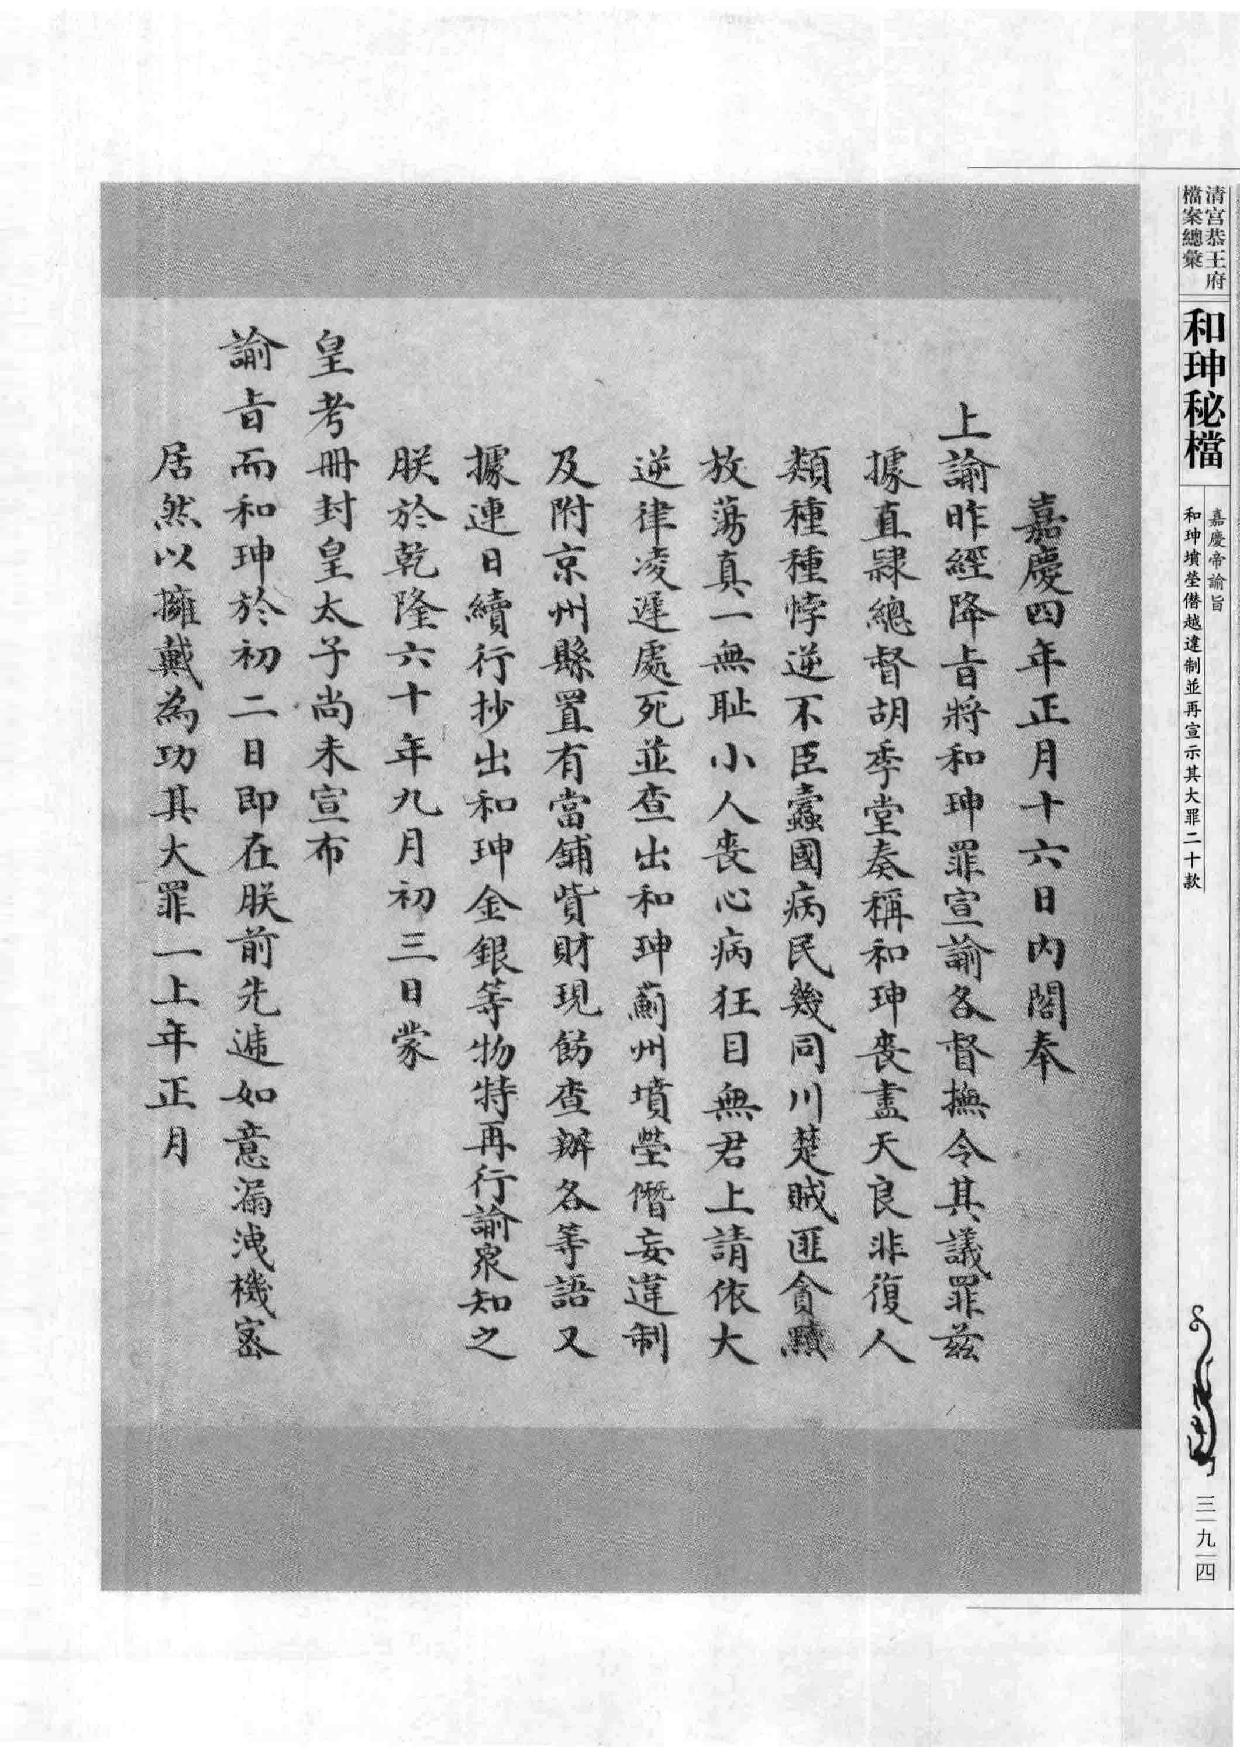 清宮恭王府
檔案總彙
和珅秘檔
嘉慶帝諭旨
和珅墳塋僭越違制並再宣示其大罪二十款
三一九一四
嘉慶四年正月十六日内閣奉
上諭昨經降㫖將和珅罪宣諭各督撫令其議罪茲
據直隸總督胡季堂奏稱和珅喪盡天良非復人
類種種悖逆不臣蠹國病民幾同川楚賊匪貪黷
放蕩真一無耻小人喪心病狂目無君上請依大
逆律凌遲處死並查出和珅薊州墳塋僭妄違制
及附京州縣置有當舖貲財現飭查辦各等語又
據連日續行抄出和珅金銀等物特再行諭衆知之
朕於乾隆六十年九月初三日蒙
皇考冊封皇太子尚未宣布
諭㫖而和珅於初二日即在朕前先遞如意漏洩機密
居然以擁戴為功其大罪一上年正月